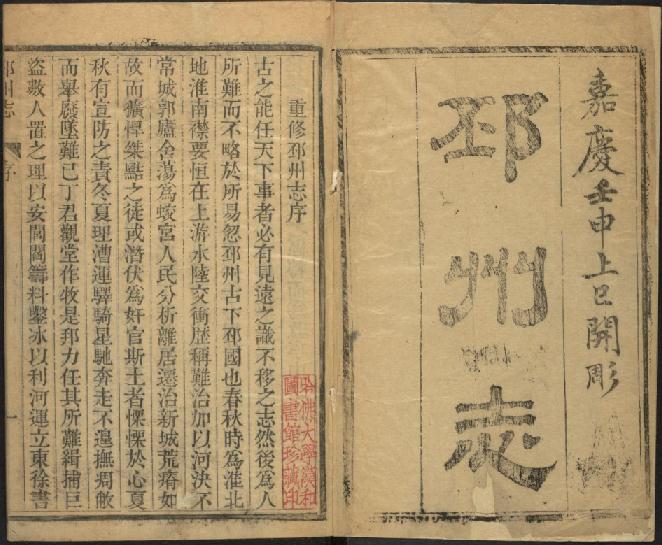 嘉慶壬申上巳開彫
邳州志
重修邳州志序
古之能任天下事者必有見遠之識不移之志然後為人
所難而不略於所易忽邳州古下邳國也春秋時為淮北
地淮南襟要恒在上游水陸交衝歷稱難治加以河決不
常城郭廬舍蕩為蛟宮人民分析離居遷治新城荒瘠如
故而獷悍桀黠之徒或潛伏為奸官斯土者慄慄於心夏
秋有宣防之責冬夏理漕運驛騎星馳奔走不遑撫凋敝
而舉廢墜難已丁君觀堂作牧是邦力任其所難緝捕巨
盜數人置之理以安閭閻籌料鑿冰以利河運立東徐書
邳州志
序
一
哈佛大學漢和
圖書館珍藏印